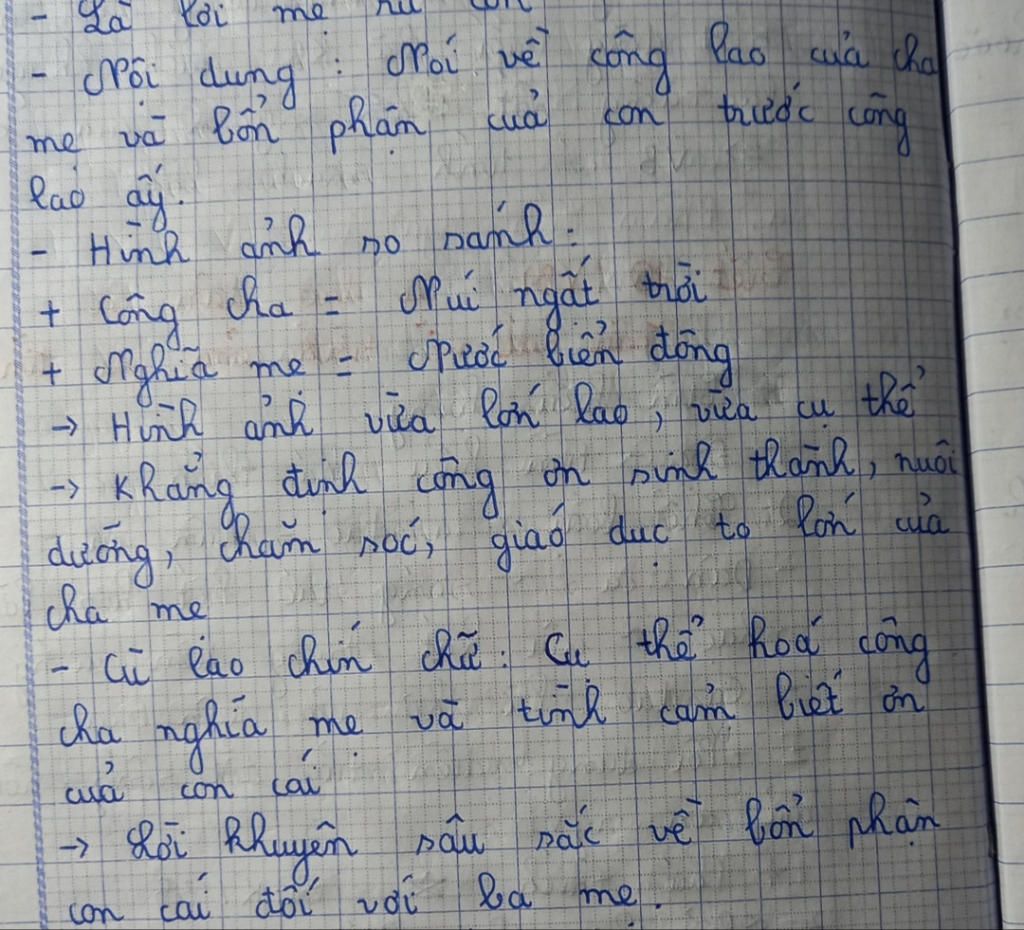 - Là lời mẹ ru con
- Nội dung : Nói về công lao của cha
mẹ và bổn phận của con trước công
lao ấy.
- Hình ảnh so sánh :
+ Công cha = Núi ngất trời
+ Nghĩa mẹ = Nước biển đông
→ Hình ảnh vừa lớn lao, vừa cụ thể
→ Khẳng định công ơn sinh thành, nuôi
dưỡng, chăm sóc, giáo dục to lớn của
cha mẹ
- Cù lao chín chữ : Cụ thể hoá công
cha nghĩa mẹ và tình cảm biết ơn
của con cái
→ Lời khuyên sâu sắc về bổn phận
con cái đối với ba mẹ.